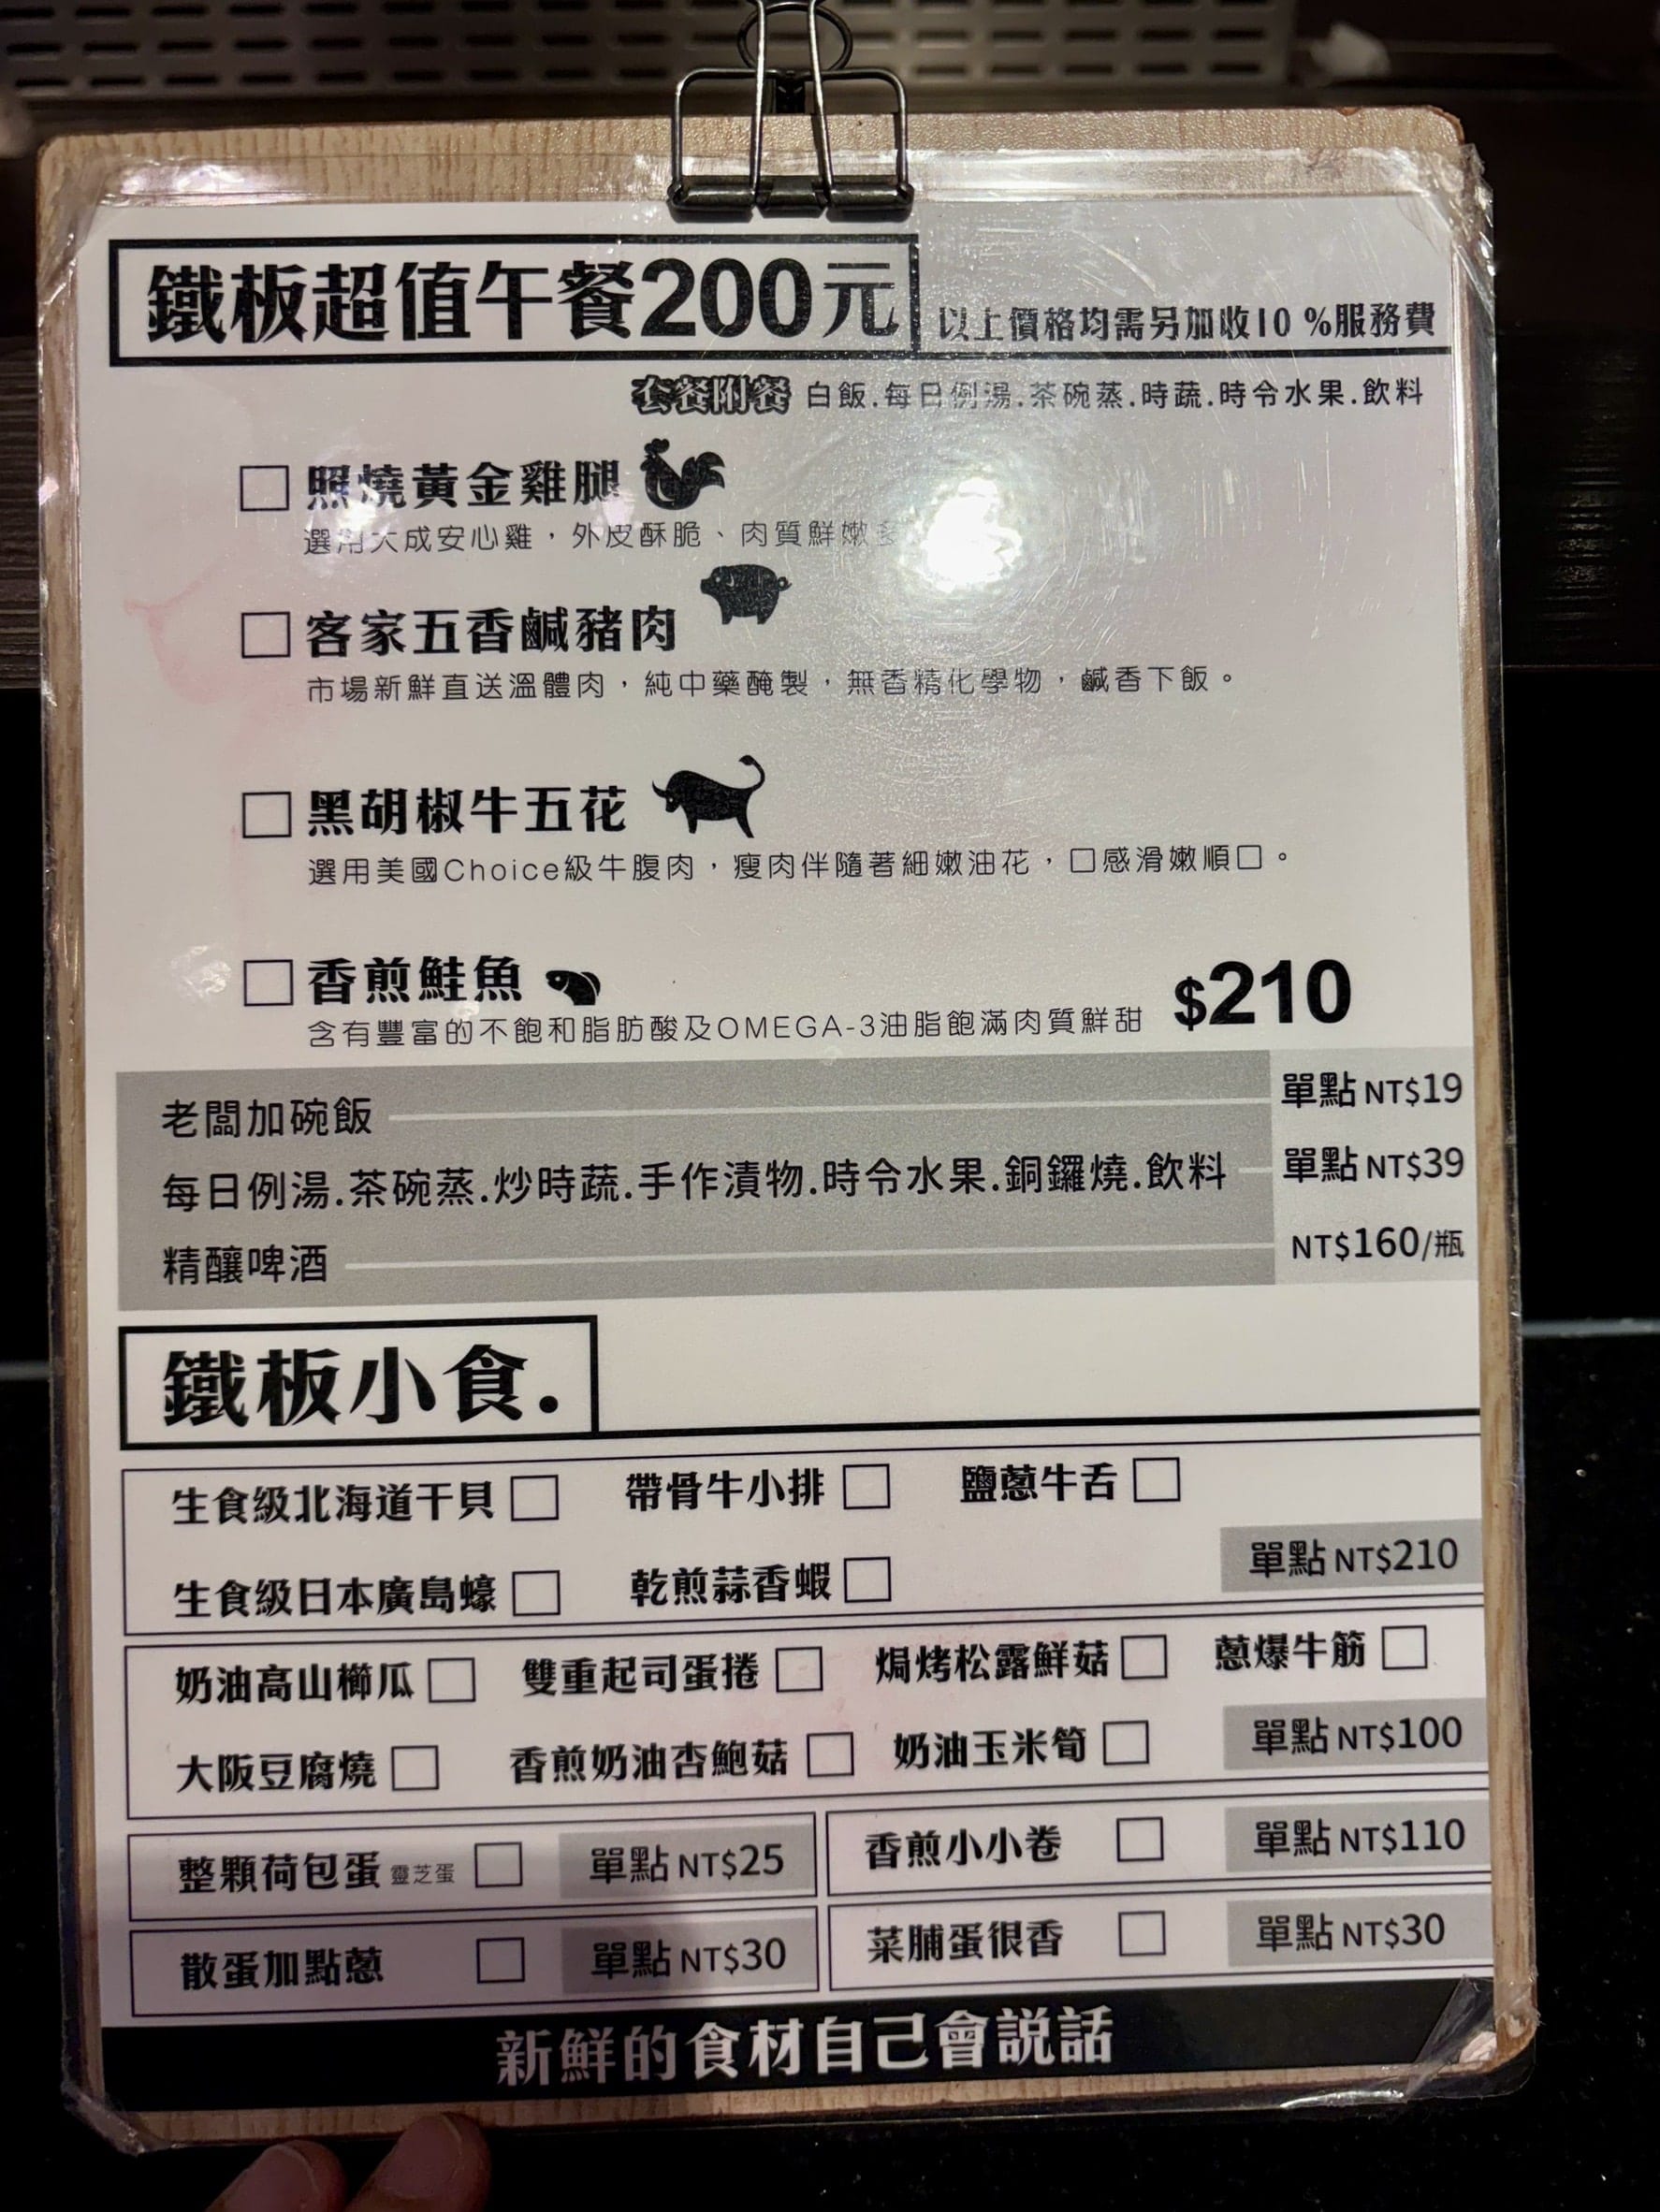 鐵板超值午餐200元 以上價格均需另加收10 %服務費
套餐附餐 白飯.每日例湯.茶碗蒸.時蔬.時令水果.飲料
照燒黃金雞腿
選用大成安心雞，外皮酥脆、肉質鮮嫩
客家五香鹹豬肉
市場新鮮直送溫體肉，純中藥醃製，無香精化學物，鹹香下飯。
黑胡椒牛五花
選用美國Choice級牛腹肉，瘦肉伴隨著細嫩油花，口感滑嫩順口。
香煎鮭魚 $210
含有豐富的不飽和脂肪酸及OMEGA-3油脂飽滿肉質鮮甜
老闆加碗飯 單點 NT$19
每日例湯.茶碗蒸.炒時蔬.手作漬物.時令水果.銅鑼燒.飲料 單點 NT$39
精釀啤酒 NT$160/瓶
鐵板小食.
生食級北海道干貝 帶骨牛小排 鹽蔥牛舌
單點 NT$210
生食級日本廣島蠔 乾煎蒜香蝦
奶油高山櫛瓜 雙重起司蛋捲 焗烤松露鮮菇 蔥爆牛筋
大阪豆腐燒 香煎奶油杏鮑菇 奶油玉米筍 單點 NT$100
整顆荷包蛋 靈芝蛋 單點 NT$25 香煎小小卷 單點 NT$110
散蛋加點蔥 單點 NT$30 菜脯蛋很香 單點 NT$30
新鮮的食材自己會説話